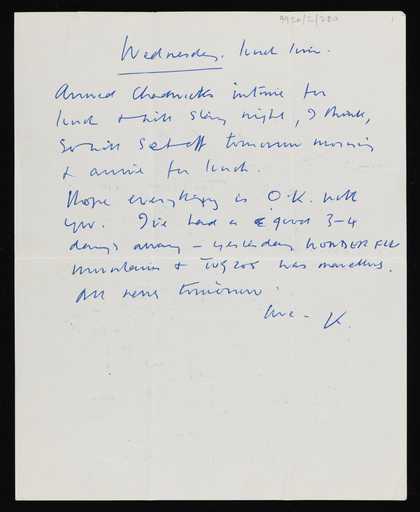 9920/2/280
Wednesday. lunch time.
Arrived Chadwicks in time for
lunch & will stay night, I think,
So will set off tomorrow morning
& arrive for lunch.
Hope everything is O.K. with
you. I've had a good 3-4
days away – yesterday WONDERFUL
mountains & was marvellous.
All news tomorrow.
Love – K.